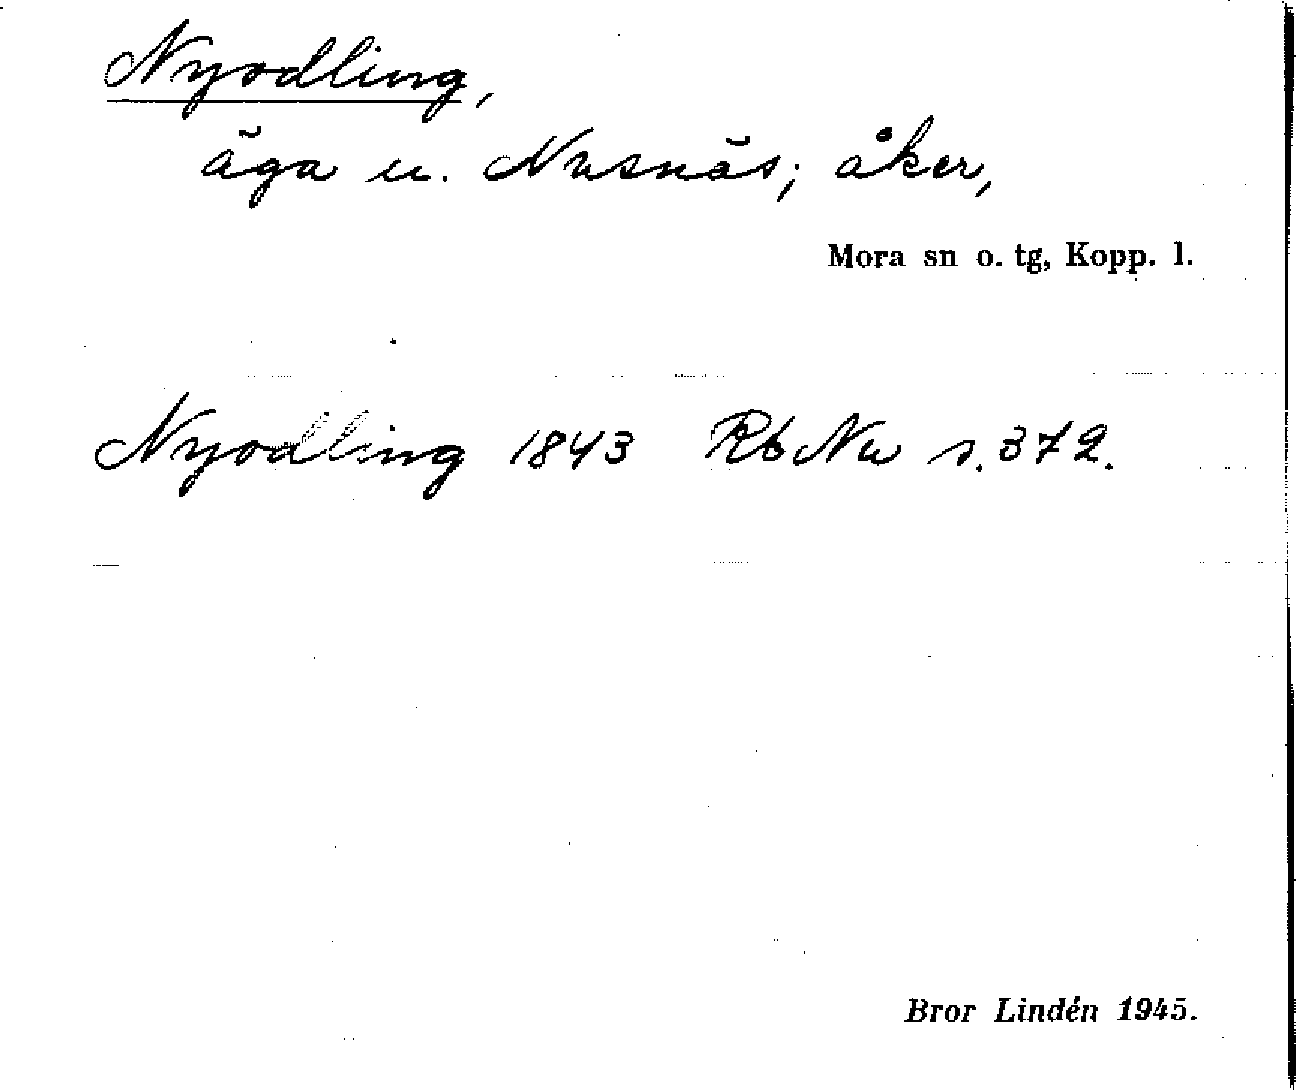 Nyodling,
äga u. Nusnäs; åker,
Mora sn o. tg, Kopp. l.
Nyodling 1843 Rb Nu s. 372.
Bror Lindén 1945.